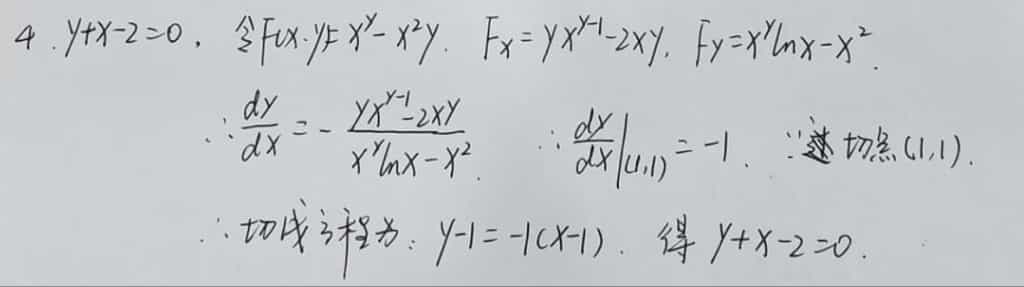 4. y+x-2=0, 令F(x·y)=x^y-x^2y. F_x=yx^{y-1}-2xy, F_y=x^y lnx-x^2.
∴ \frac{dy}{dx}=-\frac{yx^{y-1}-2xy}{x^y lnx-x^2}. ∴ \frac{dy}{dx}|_{(1,1)}=-1. ∵过切点(1,1).
∴切线方程为: y-1=-1(x-1). 得 y+x-2=0.